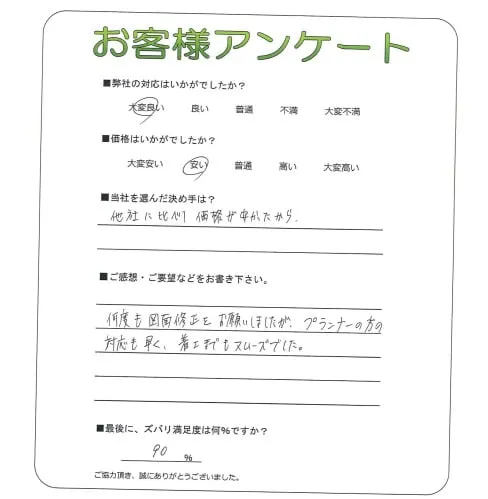 お客様アンケート
■弊社の対応はいかがでしたか?
大変良い 良い 普通 不満 大変不満
■価格はいかがでしたか?
大変安い 安い 普通 高い 大変高い
■当社を選んだ決め手は?
他社に比べ価格が安かたから.
■ご感想・ご要望などをお書き下さい。
何度も図面修正をお願いしましたが、プランナーの方の
対応も早く、着工までもスムーズでした。
■最後に、ズバリ満足度は何%ですか?
90 %
ご協力頂き、誠にありがとうございました。